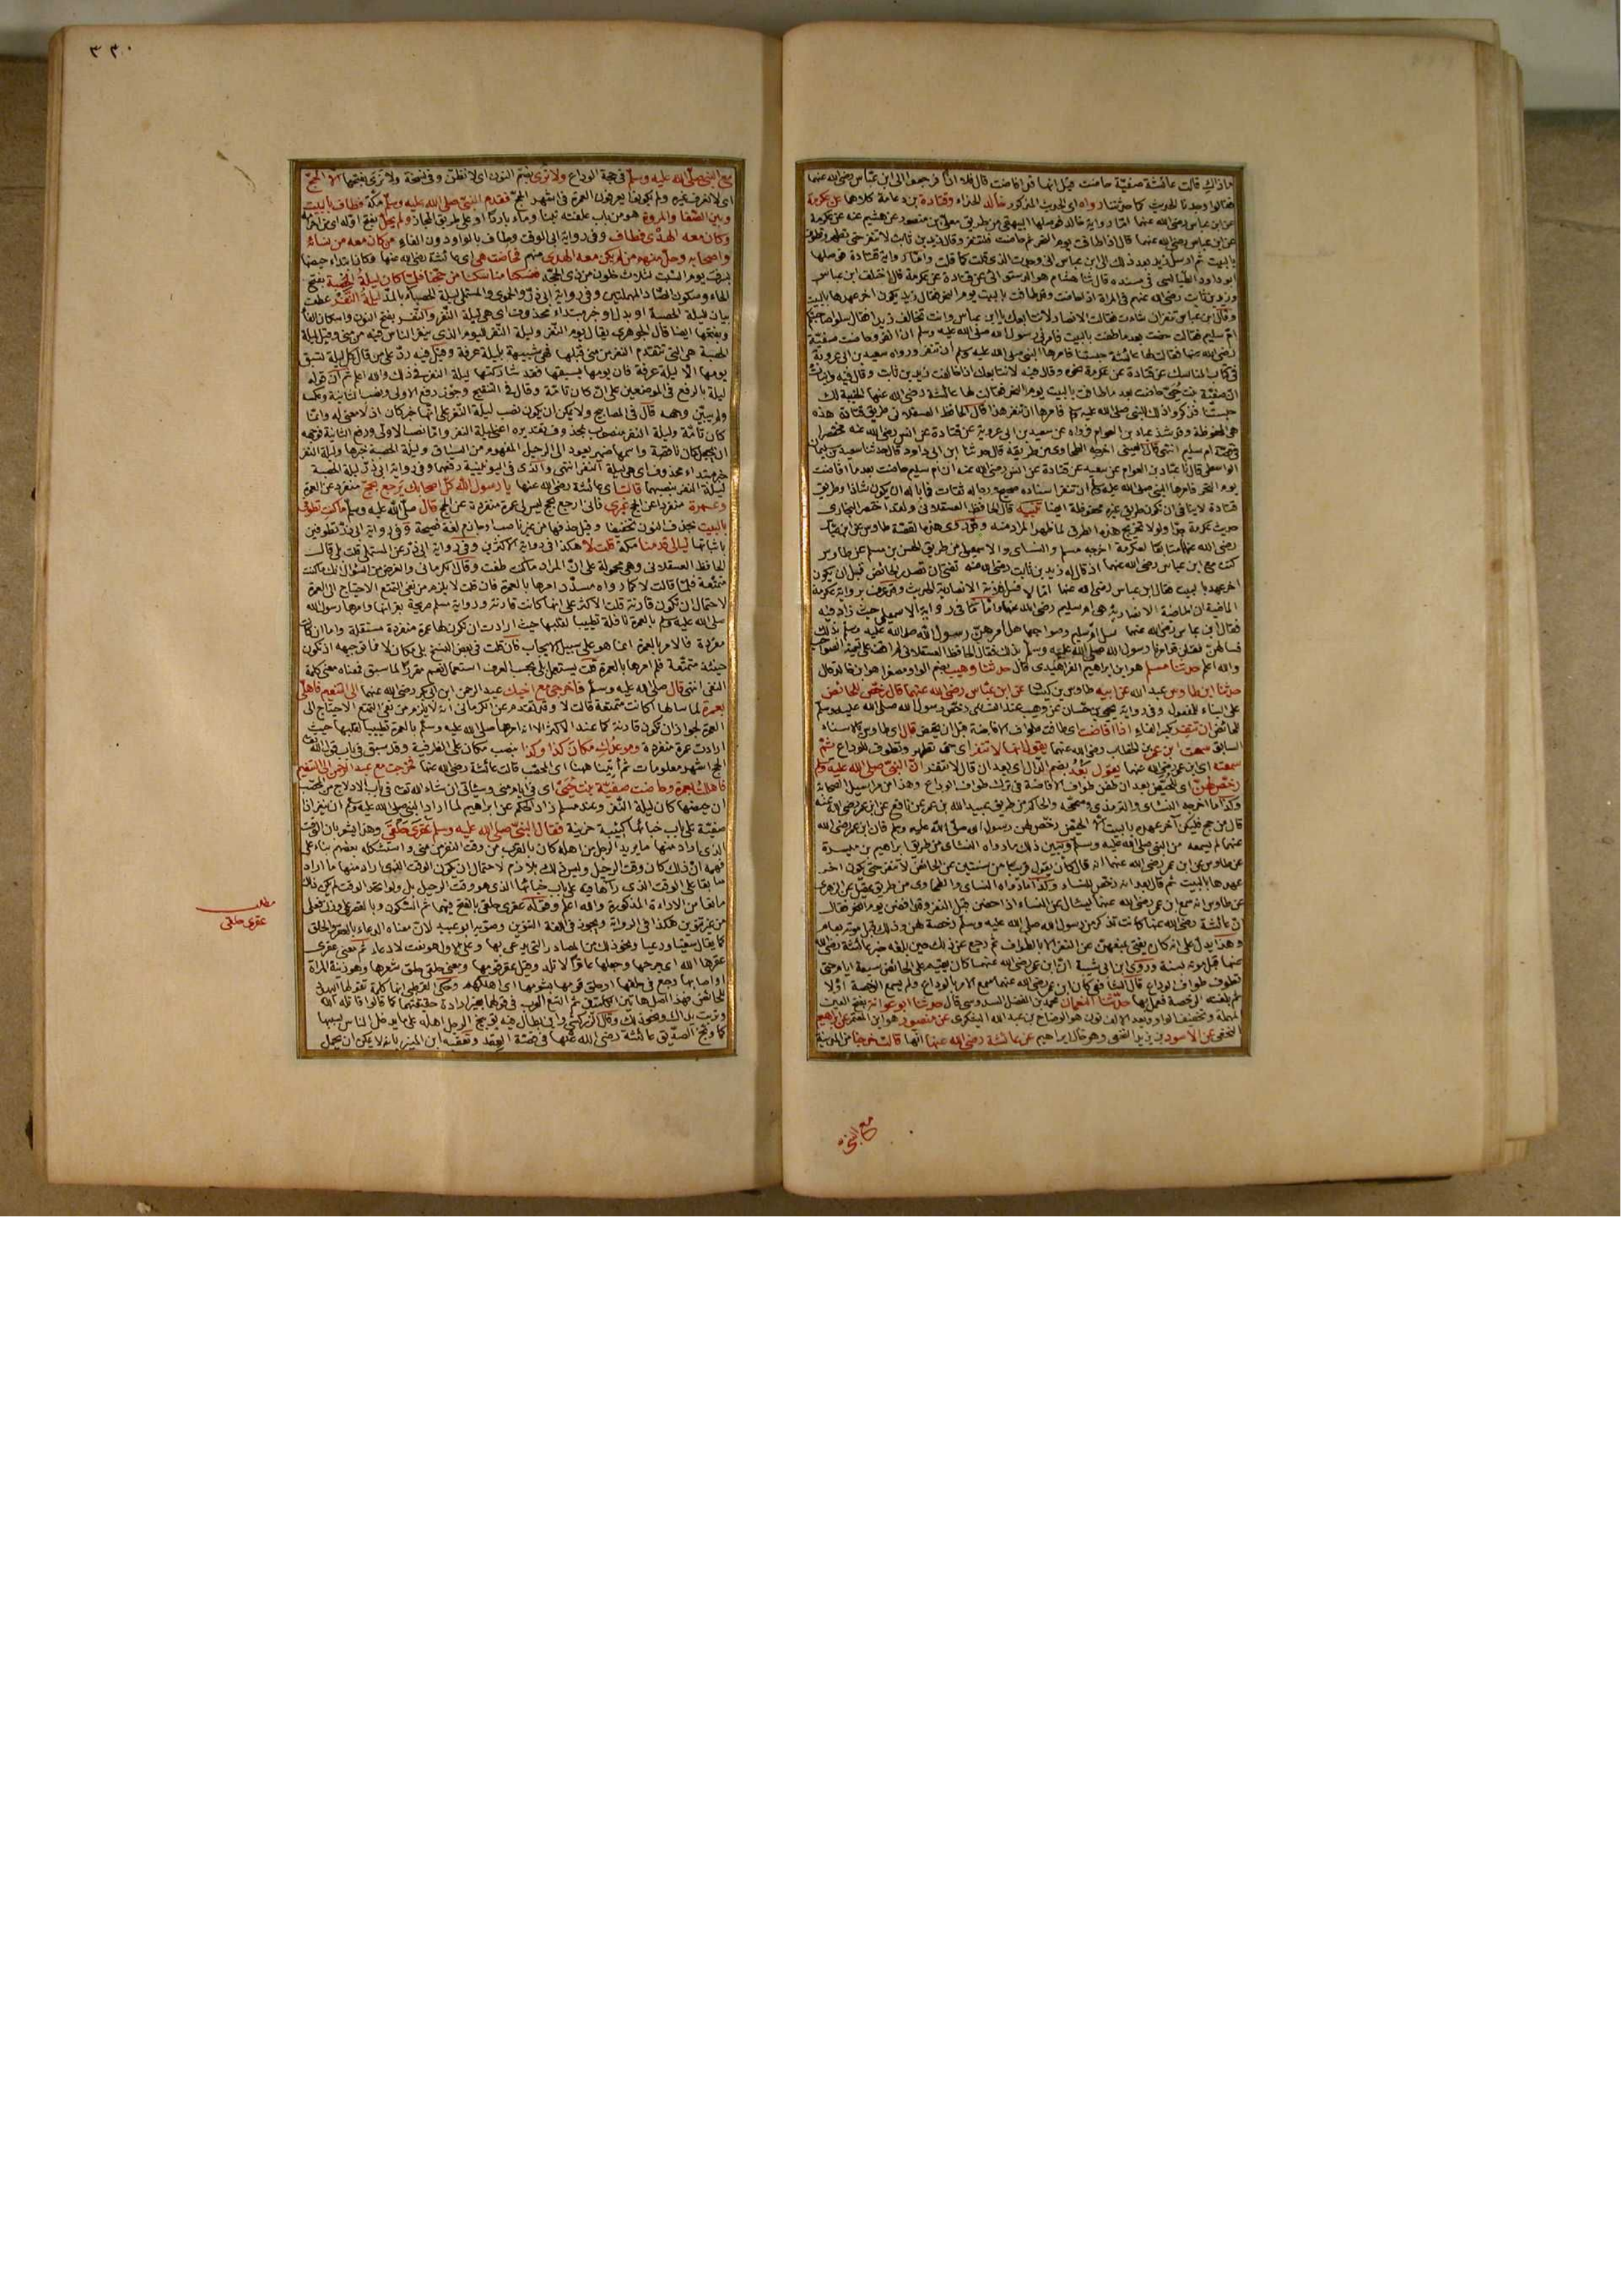 ماذاك قالت عائشة صفية حاضت قيل انها قد افاضت قال فلا اذا فرجعوا الى ابن عباس رضى الله عنهما
فقالوا وجدنا الحديث كما حدثتنا رواه اى الحديث المذكور خالد الحذاء وقتادة بن دعامة كلاهما عن عكرمة
عن ابن عباس رضى الله عنهما اما رواية خالد فوصلها البيهقى من طريق معلى بن منصور عن هشيم عنه عن عكرمة
عن ابن عباس رضى الله عنهما قال اذا طافت يوم النحر ثم حاضت فلتنفر وقال زيد بن ثابت لا تنفر حتى تطهر وتطوف
بالبيت ثم ارسل زيد بعد ذلك الى ابن عباس انى وجدت الذى قلت كما قلت واما رواية قتادة فوصلها
ابو داود الطيالسى فى مسنده قال ثنا هشام هو الدستوائى عن قتادة عن عكرمة قال اختلف ابن عباس
وزيد بن ثابت رضى الله عنهم فى المرأة اذا حاضت وقد طافت بالبيت يوم النحر فقال زيد يكون اخر عهدها بالبيت
وقال ابن عباس تنفر ان شاءت فقالت الانصار لا نتابعك يا ابن عباس وانت تخالف زيدا فقال سلوا صاحبتكم
ام سليم فقالت حضت بعد ما طفت بالبيت فامرنى رسول الله صلى الله عليه وسلم ان انفر وحاضت صفية
رضى الله عنها فقالت لها عائشة حبستنا فامرها النبى صلى الله عليه وسلم ان تنفر ورواه سعيد بن ابى عروبة
فى كتاب المناسك عن قتادة عن عكرمة نحوه وقال فيه لا نتابعك اذا خالفت زيد بن ثابت وقال فيه وانبئت
ان صفية بنت حيى حاضت بعد ما طافت بالبيت يوم النحر فقالت لها عائشة رضى الله عنها الخيبة لك
حبستنا فذكروا ذلك للنبى صلى الله عليه وسلم فامرها ان تنفر هذا قال الحافظ العسقلانى طريق قتادة هذه
هى المحفوظة وقد شذ عباد بن العوام فرواه عن سعيد بن ابى عروبة عن قتادة عن انس رضى الله عنه مختصرا
قصة ام سليم انتهى قال العينى اخرجه الطحاوى من طريقه قال حدثنا ابن ابى داود قال حدثنا سعيد بن سليمان
الواسطى قال نا عباد بن العوام عن سعيد عن قتادة عن انس رضى الله عنه ان ام سليم حاضت بعد ما افاضت
يوم النحر فامرها النبى صلى الله عليه وسلم ان تنفر اسناده صحيح ورجاله ثقات
قتادة لا ينافى ان يكون طريق غيره محفوظة ايضا تنبيه قال الحافظ العسقلانى ولقد اختصر البخارى
حديث عكرمة جدا ولولا تخريج هذه الطرق لما ظهر المراد منه وقد روى هذه القصة طاوس عن ابن عباس
رضى الله عنهما متابعا لعكرمة اخرجه مسلم والنسائى والاسمعيلى من طريق الحسن بن مسلم عن طاوس
كنت مع ابن عباس رضى الله عنهما اذ قال له زيد بن ثابت رضى الله عنه تفتى ان تصدر الحائض قبل ان يكون
اخر عهدها بالبيت فقال ابن عباس رضى الله عنهما اما لا فسل فلانة الانصارية الحديث وقد عرفت برواية عكرمة
الماضية ان الانصارية هى ام سليم رضى الله عنها
فقال ابن عباس رضى الله عنهما سل ام سليم وصواحبها هل امرهن رسول الله صلى الله عليه وسلم بذلك
فسألهن فقلن قد امرنا رسول الله صلى الله عليه وسلم بذلك
والله اعلم حدثنا مسلم هو ابن ابراهيم الفراهيدى قال حدثنا وهيب بضم الواو مصغرا هو ابن خالد قال
حدثنا ابن طاوس عبد الله عن ابيه طاوس بن كيسان عن ابن عباس رضى الله عنهما قال رخص للحائض
على البناء للمفعول وفى رواية يحيى بن حسان عن وهيب عند النسائى رخص رسول الله صلى الله عليه وسلم
للحائض ان تنفر بكسر الفاء اذا افاضت اى طافت طواف الافاضة قبل ان تحيض قال اى طاوس بالاسناد
السابق سمعت ابن عمر بن الخطاب رضى الله عنهما يقول انها لا تنفر اى حتى تطهر وتطوف للوداع ثم
سمعته اى ابن عمر رضى الله عنهما يقول بعد بضم الدال اى بعد ان قال لا تنفر ان النبى صلى الله عليه وسلم
رخص لهن اى للحيض بعد ان طفن طواف الافاضة فى ترك طواف الوداع وهذا من مراسيل الصحابة
وكذا ما اخرجه النسائى والترمذى وصححه والحاكم من طريق عبيد الله بن عمر عن نافع عن ابن عمر رضى الله عنه
قال من حج فليكن آخر عهده بالبيت الا الحيض رخص لهن رسول الله صلى الله عليه وسلم فان ابن عمر رضى الله
عنهما لم يسمعه من النبى صلى الله عليه وسلم وتبين ذلك ما رواه النسائى من طريق ابراهيم بن ميسرة
عن طاوس عن ابن عمر رضى الله عنهما انه قال كان يقول قريبا من سنتين عن الحائض لا تنفر حتى يكون اخر
عهدها بالبيت ثم قال بعد انه رخص للنساء وكذا ما رواه النسائى والطحاوى من طريق عقيل عن الزهرى
عن طاوس انه سمع ابن عمر رضى الله عنهما يسئال عن النساء اذا حضن قبل النفر وقد افضن يوم النحر فقال
ان عائشة رضى الله عنها كانت تذكر من رسول الله صلى الله عليه وسلم رخصة لهن وذلك قبل موته بعام
وهذا يدل على انه كان يفتى بمنعهن عن النفر الا بالطواف ثم رجع عن ذلك حين بلغه خبر عائشة رضى الله
عنها قبل موته بسنة وروى ابن ابى شيبة ان ابن عمر رضى الله عنهما كان يقيم على الحائض سبعة ايام حتى
تطوف طواف الوداع قال الشافعى كان ابن عمر رضى الله عنهما سمع الامر بالوداع ولم يسمع الرخصة اولا
ثم بلغته الرخصة فعمل بها حدثنا ابو النعمان محمد بن الفضل السدوسى قال حدثنا ابو عوانة بفتح العين
المهملة وتخفيف الواو وبعد الالف نون هو الوضاح بن عبد الله اليشكرى عن منصور هو ابن المعتمر عن ابراهيم
النخعى عن الاسود بن يزيد النخعى وهو خال ابراهيم عن عائشة رضى الله عنها انها قالت خرجنا من المدينة
مع النبى
٣٣٠
مع النبى صلى الله عليه وسلم فى حجة الوداع ولا نرى بضم النون اى لا نظن وفى نسخة ولا نرى بفتحها الا الحج
اى لا نعرف غيره ولم يكونوا يعرفون العمرة فى اشهر الحج فقدم النبى صلى الله عليه وسلم مكة فطاف بالبيت
وبين الصفا والمروة هو من باب علفته تبنا وماء باردا او على طريق المجاز ولم يحل بفتح اوله اى من احرامه
وكان معه الهدى فطاف وفى رواية ابى الوقت وطاف بالواو دون الفاء من كان معه من نسائه
واصحابه وحل منهم من لم يكن معه الهدى منهم فحاضت هى اى عائشة رضى الله عنها فكان ابتداء حيضها
بسرف يوم السبت لثلاث خلون من ذى الحجة فنسكنا مناسكنا من حجنا فلما كان ليلة الحصبة بفتح
الحاء وسكون الصاد المهملتين وفى رواية ابى ذر عن الحموى والمستملى ليلة الحصباء بالمد ليلة النفر عطف
بيان لليلة الحصبة او بدل او خبر مبتداء محذوف اى هى ليلة النفر والنفر بفتح النون واسكان الفاء
وبفتحها ايضا قال الجوهرى يقال يوم النفر وليلة النفر لليوم الذى ينفر الناس فيه من منى وقيل ليلة
الحصبة هى التى تتقدم النفر من منى قبلها فهى شبيهة بليلة عرفة وقيل فيه رد على من قال كل ليلة تسبق
يومها الا ليلة عرفة فان يومها يسبقها فقد شاركتها ليلة النفر فى ذلك والله اعلم ثم ان قوله
ليلة بالرفع فى الموضعين على ان كان تامة وقال فى التنقيح وجوز رفع الاولى ونصب الثانية وعكسه
ولم يبين وجهه قال فى المصابيح ولا يمكن ان يكون نصب ليلة النفر على انها خبر كان اذ لا معنى له وانما
كان تامة وليلة النفر منصوب بمحذوف تقديره اعنى ليلة النفر واما نصب الاولى ورفع الثانية فوجهه
ان يجعل كان ناقصة واسمها ضمير يعود الى الرحيل المفهوم من السياق وليلة الحصبة خبرها وليلة النفر
خبر مبتداء محذوف اى هى ليلة النفر انتهى والذى فى اليونينية رفعهما وفى رواية ابى ذر ليلة الحصبة
ليلة النفر بنصبهما قالت اى عائشة رضى الله عنها يا رسول الله كل اصحابك يرجع بحج منفرد عن العمرة
وعمرة منفردة عن الحج غيرى فانى ارجع بحج ليس لى عمرة منفردة عن الحج قال صلى الله عليه وسلم ما كنت تطوفى
بالبيت بحذف النون تخفيفا وقيل حذفها من غير ناصب او جازم لغة فصيحة وفى رواية ابى ذر تطوفين
باثباتها ليالى قدمنا مكة قلت لا هكذا فى رواية الاكثرين وفى رواية ابى ذر عن المستملى قلت بلى قال
الحافظ العسقلانى وهى محمولة على ان المراد ما كنت طفت وقال الكرمانى والغرض من السؤال انك ما كنت
متمتعة فلما قالت لا كما رواه مسدد امرها بالعمرة فان قلت لا يلزم من نفى التمتع الاحتياج الى العمرة
لاحتمال ان تكون قارنة قلت الاكثر على انها كانت قارنة ورواية مسلم صريحة بقرانها وامرها رسول الله
صلى الله عليه وسلم بالعمرة نافلة تطييبا لقلبها حيث ارادت ان تكون لها عمرة منفردة مستقلة واما ان كانت
مفردة فالامر بالعمرة انما هو على سبيل الايجاب فان قلت فى بعض النسخ بلى مكان لا فما توجيهه اذ تكون
حينئذ متمتعة فلم امرها بالعمرة قلت يستعمل بلى بحسب العرف استعمال نعم مقررا لما سبق فمعناه معنى كلمة
النفى انتهى قال صلى الله عليه وسلم فاخرجى مع اخيك عبد الرحمن ابن ابى بكر رضى الله عنهما الى التنعيم فاهلى
بعمرة لما سألها اكانت متمتعة قالت لا وقد تقدم عن الكرمانى انه لا يلزم من نفى التمتع الاحتياج الى
العمرة لجواز ان تكون قارنة كما عند الاكثر الا انه امرها صلى الله عليه وسلم بالعمرة تطييبا لقلبها حيث
ارادت عمرة منفردة وموعدك مكان كذا وكذا بنصب مكان على الظرفية وقد سبق فى باب قول الله تعالى
الحج اشهر معلومات ثم ائتنا ههنا اى المحصب قالت عائشة رضى الله عنها فخرجت مع عبد الرحمن الى التنعيم
فاهللت بعمرة وحاضت صفية بنت حيى اى فى ايام منى وسيأتى ان شاء الله تعالى فى باب الادلاج من المحصب
ان حيضها كان ليلة النفر وعند مسلم زاد الحكم عن ابراهيم لما اراد النبى صلى الله عليه وسلم ان ينفر اذا
صفية على باب خبائها كئيبة حزينة فقال النبى صلى الله عليه وسلم عقرى حلقى وهذا يشعر بان الوقت
الذى اراد منها ما يريد الرجل من اهله كان بالقرب من وقت النفر من منى واستشكله بعضهم بناء على
فهمه ان ذلك كان وقت الرحيل وليس ذلك بلازم لاحتمال ان يكون الوقت الذى اراد منها ما اراد
سابقا على الوقت الذى رآها فيه على باب خبائها الذى هو وقت الرحيل بل ولو اتحد الوقت لم يكن ذلك
مانعا من الارادة المذكورة والله اعلم وقوله عقرى حلقى بالفتح فيهما ثم السكون وبالقصر على وزن فعلى
من غير تنوين هكذا فى الرواية ويجوز فى اللغة التنوين وصوبه ابو عبيد لان معناه الدعاء بالعقر والحلق
كما يقال سقيا ورعيا ونحو ذلك من المصادر التى يدعى بها وعلى الاول هو نعت لا دعاء ثم معنى عقرى
عقرها الله اى جرحها وجعلها عاقرا لا تلد وقيل عقر قومها ومعنى حلقى حلق شعرها وهو زينة المرأة
او اصابها وجع فى حلقها او حلق قومها بشؤمها اى اهلكهم وحكى القرطبى انها كلمة تقولها اليهود
للحائض فهذا اصل هاتين الكلمتين ثم اتسع العرب فى قولهما بغير ارادة حقيقتهما كما قالوا قاتله الله
وتربت يداك ونحو ذلك وقال الزركشى وابن بطال فيه توبيخ الرجل اهله على ما يدخل الناس بسببها
كما وبخ الصديق عائشة رضى الله عنها فى قصة العقد وتعقبه ابن المنير بانه لا يمكن ان يحمل
مطلب
عقرى حلقى